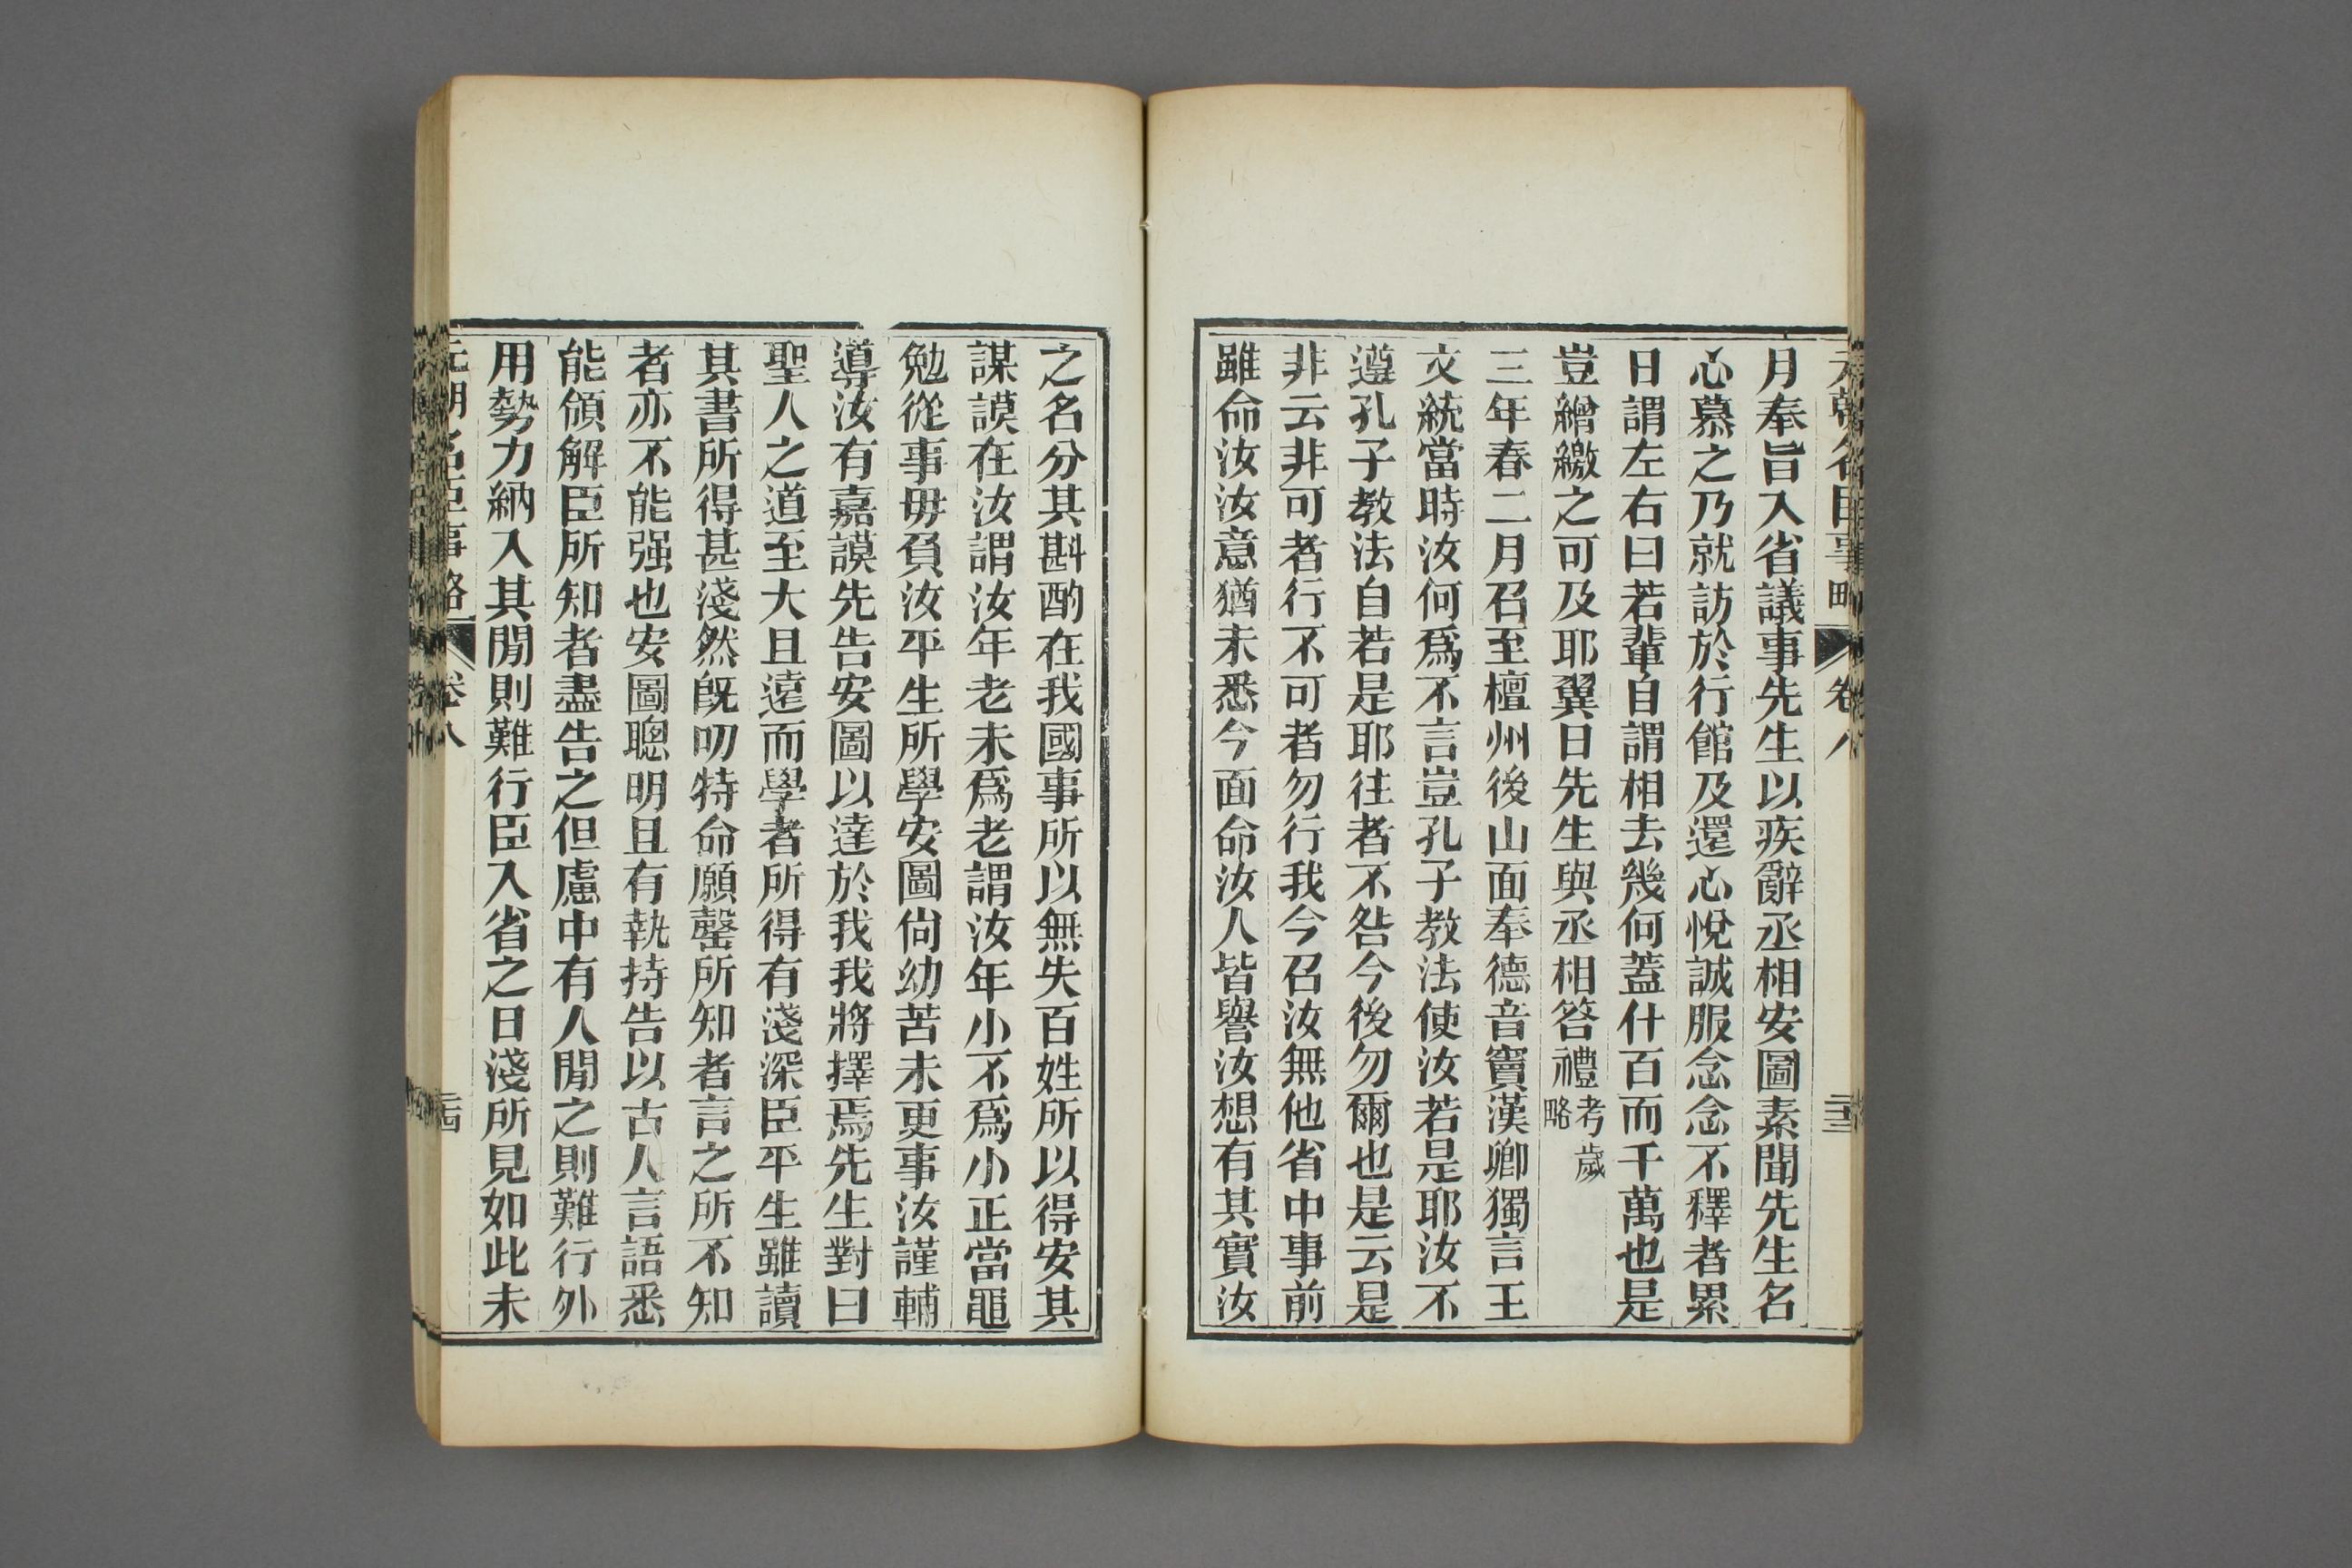 元朝名臣事略 卷八 二十三
月奉旨入省議事先生以疾辭丞相安圖素聞先生名
心慕之乃就訪於行館及還心悅誠服念念不釋者累
日謂左右曰若輩自謂相去幾何蓋什百而千萬也是
豈繒繳之可及耶翼日先生與丞相答禮考歲略
三年春二月召至檀州後山面奉德音竇漢卿獨言王
文統當時汝何爲不言豈孔子教法使汝若是耶汝不
遵孔子教法自若是耶往者不咎今後勿爾也是云是
非云非可者行不可者勿行我今召汝無他省中事前
雖命汝汝意猶未悉今面命汝人皆譽汝想有其實汝
之名分其斟酌在我國事所以無失百姓所以得安其
謀謨在汝謂汝年老未爲老謂汝年小不爲小正當黽
勉從事毋負汝平生所學安圖尙幼苦未更事汝謹輔
導汝有嘉謨先告安圖以達於我我將擇焉先生對曰
聖人之道至大且遠而學者所得有淺深臣平生雖讀
其書所得甚淺然旣叨特命願罄所知者言之所不知
者亦不能强也安圖聰明且有執持告以古人言語悉
能領解臣所知者盡告之但慮中有人閒之則難行外
用勢力納入其閒則難行臣入省之日淺所見如此未
元朝名臣事略 卷八 二十四